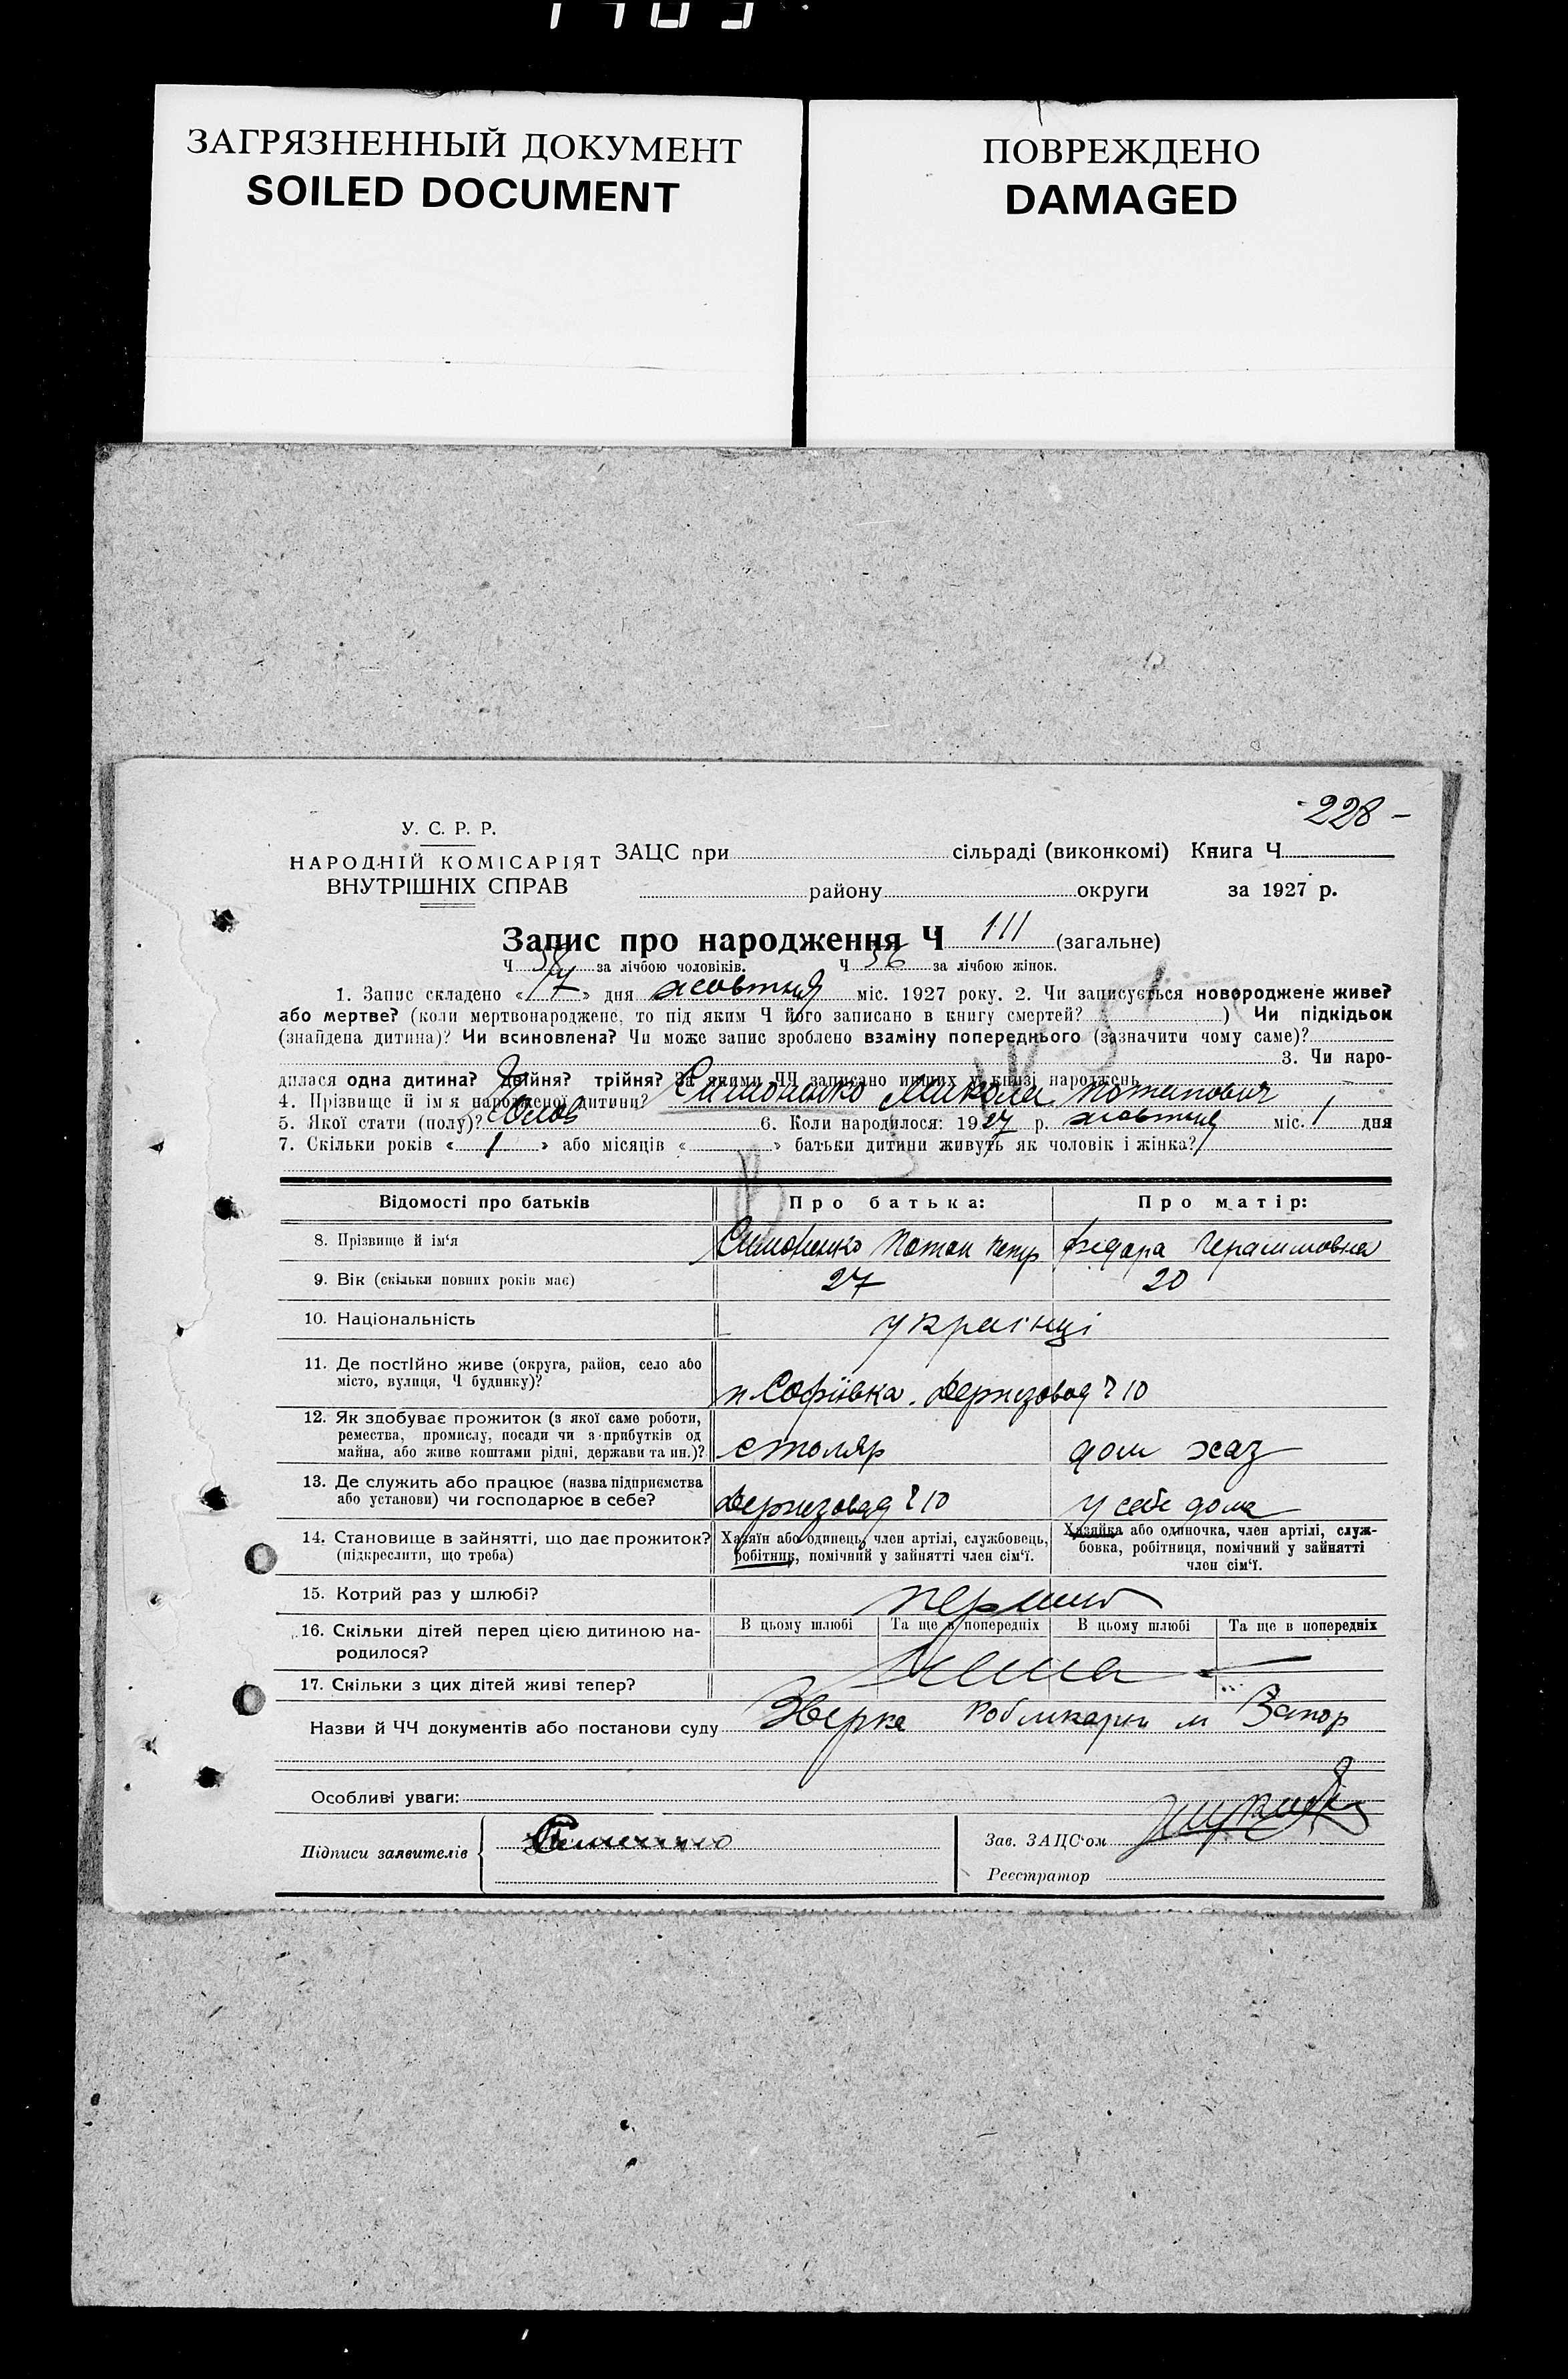 ЗАГРЯЗНЕННЫЙ ДОКУМЕНТ
SOILED DOCUMENT
ПОВРЕЖДЕНО
DAMAGED
-228-
У. С. Р. Р.
НАРОДНІЙ КОМІСАРІЯТ
ВНУТРІШНІХ СПРАВ
ЗАЦС при сільраді (виконкомі) Книга Ч.
району округи за 1927 р.
Запис про народження Ч 111 (загальне)
Ч за лічбою чоловіків. Ч 56 за лічбою жінок.
1. Запис складено «17» дня жовтня міс. 1927 року. 2. Чи записується новороджене живе?
або мертве? (коли мертвонароджене, то під яким Ч його записано в книгу смертей? ) Чи підкідьок
(знайдена дитина)? Чи всиновлена? Чи може запис зроблено взаміну попереднього (зазначити чому саме)?
3. Чи наро-
дилася одна дитина? двійня? трійня? За якими ЧЧ записано инших у книзі народжень
4. Прізвище й ім'я народженої дитини? Симоненко Микола Потапович
5. Якої стати (полу)? Чолов 6. Коли народилося: 1927 р. жовтня міс. 1 дня
7. Скільки років « 1 » або місяців « » батьки дитини живуть як чоловік і жінка?
Відомості про батьків Про батька: Про матір:
8. Прізвище й ім'я Симоненко Потап Петр Федора Герасимовна
9. Вік (скільки повних років має) 27 20
10. Національність українці
11. Де постійно живе (округа, район, село або
місто, вулиця, Ч будинку)? п Софіївка. Держзавод Ч 10
12. Як здобуває прожиток (з якої саме роботи,
ремества, промислу, посади чи з прибутків од
майна, або живе коштами рідні, держави та ин.)? столяр дом хаз
13. Де служить або працює (назва підприємства
або установи) чи господарює в себе? Держзавод Ч 10 у себе дома
14. Становище в зайнятті, що дає прожиток?
(підкреслити, що треба)
Хазяїн або одинець, член артілі, службовець,
робітник, помічний у зайнятті член сім'ї.
Хазяйка або одиночка, член артілі, служ-
бовка, робітниця, помічний у зайнятті
член сім'ї.
15. Котрий раз у шлюбі? перший
16. Скільки дітей перед цією дитиною на-
родилося?
В цьому шлюбі Та ще в попередніх В цьому шлюбі Та ще в попередніх
нема
17. Скільки з цих дітей живі тепер?
Назви й ЧЧ документів або постанови суду м Запор
Особливі уваги:
Підписи заявителів
Зав. ЗАЦС'ом
Реєстратор